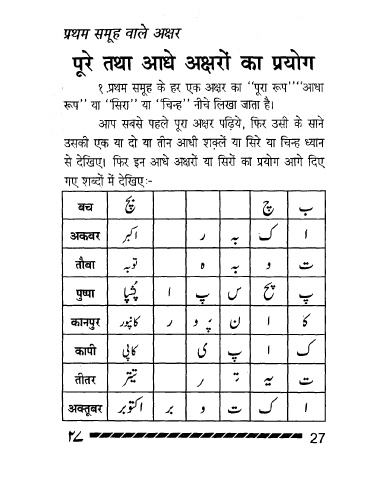 प्रथम समूह वाले अक्षर
पूरे तथा आधे अक्षरों का प्रयोग
१.प्रथम समूह के हर एक अक्षर का "पूरा रूप""आधा
रूप" या "सिरा" या "चिन्ह" नीचे लिखा जाता है।
आप सबसे पहले पूरा अक्षर पढ़िये, फिर उसी के साने
उसकी एक या दो या तीन आधी शक़्लें या सिरे या चिन्ह ध्यान
से देखिए। फिर इन आधे अक्षरों या सिरों का प्रयोग आगे दिए
गए शब्दों में देखिए:-
बच بچ چ ب
अकबर اکبر ر بہ ک ا
तौबा توبہ ہ بہ و ت
पुष्पा پُشپا ا پ س پ
कानपुर کانپور ر و پُ ن ا کا
कापी کاپی ی پ ا ک
तीतर تیتر ر تِ یہ ت
अक्तूबर اکتوبر بر و ت ک ا
٢٧ 27